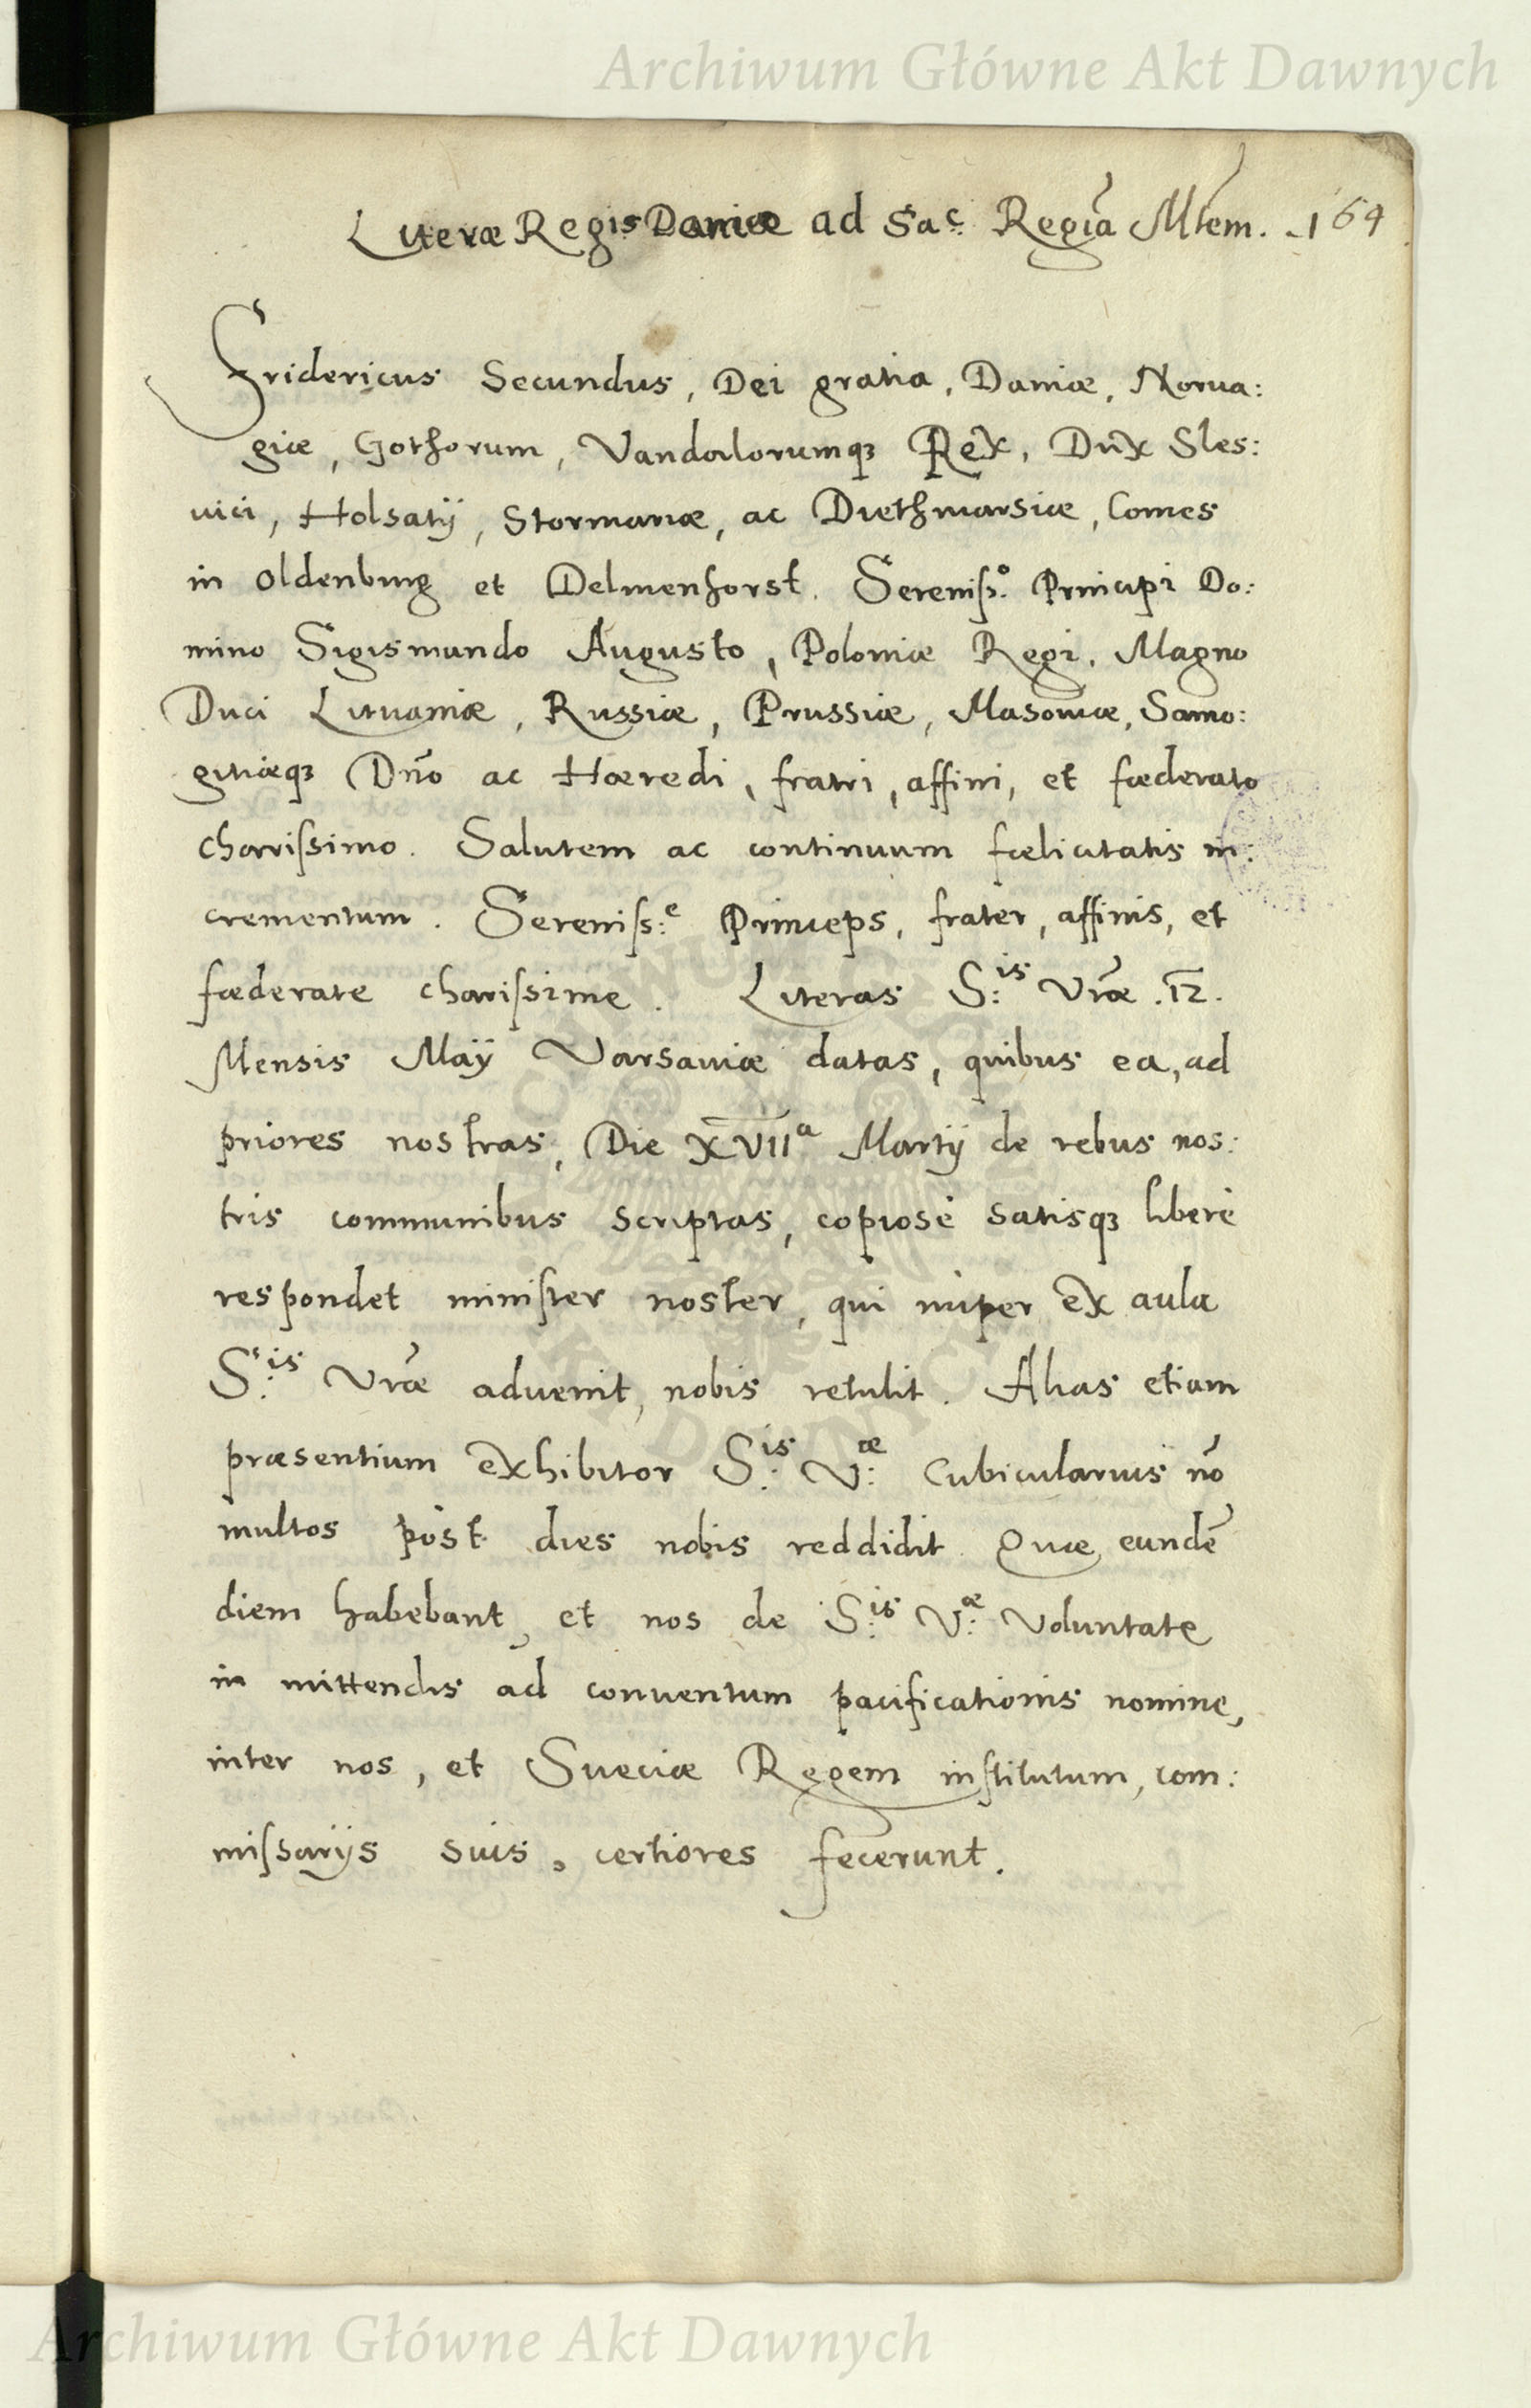 Archiwum Główne Akt Dawnych
Literæ Regis Daniæ ad Sac: Regiã Mtem. 164
Fridericus Secundus, Dei gratia, Daniæ, Norua:
giæ, Gothorum, Vandalorumq3 Rex, Dux Sles:
uici, Holsatij, Stormariæ, ac Diethmarsiæ, Comes
in Oldenburg et Delmenhorst. Sereniſs:º Principi Do:
mino Sigismundo Augusto, Poloniæ Regi, Magno
Duci Lituaniæ, Russiæ, Prussiæ, Masouiæ, Samo:
gitiæq3 Dño ac Hæredi, fratri, affini, et fœderato
chariſsimo. Salutem ac continuum fœlicitatis in:
crementum. Sereniſs:e Princeps, frater, affinis, et
fœderate chariſsime. Literas S:is Vræ .12.
Mensis Maij Varsauiæ datas, quibus ea, ad
priores nostras, Die XVIIa Martij de rebus nos:
tris communibus scriptas, copiosè satisq3 liberè
respondet miniſter noster, qui nuper ex aula
S:is Vræ aduenit, nobis retulit. Alias etiam
præsentium exhibitor S:is V:æ Cubicularius nõ
multos post dies nobis reddidit. Quæ eundẽ
diem habebant, et nos de S:is V:æ Voluntate
in mittendis ad conuentum pacificationis nomine,
inter nos, et Sueciæ Regem inſtitutum, com:
miſsarijs suis, certiores fecerunt.
Archiwum Główne Akt Dawnych